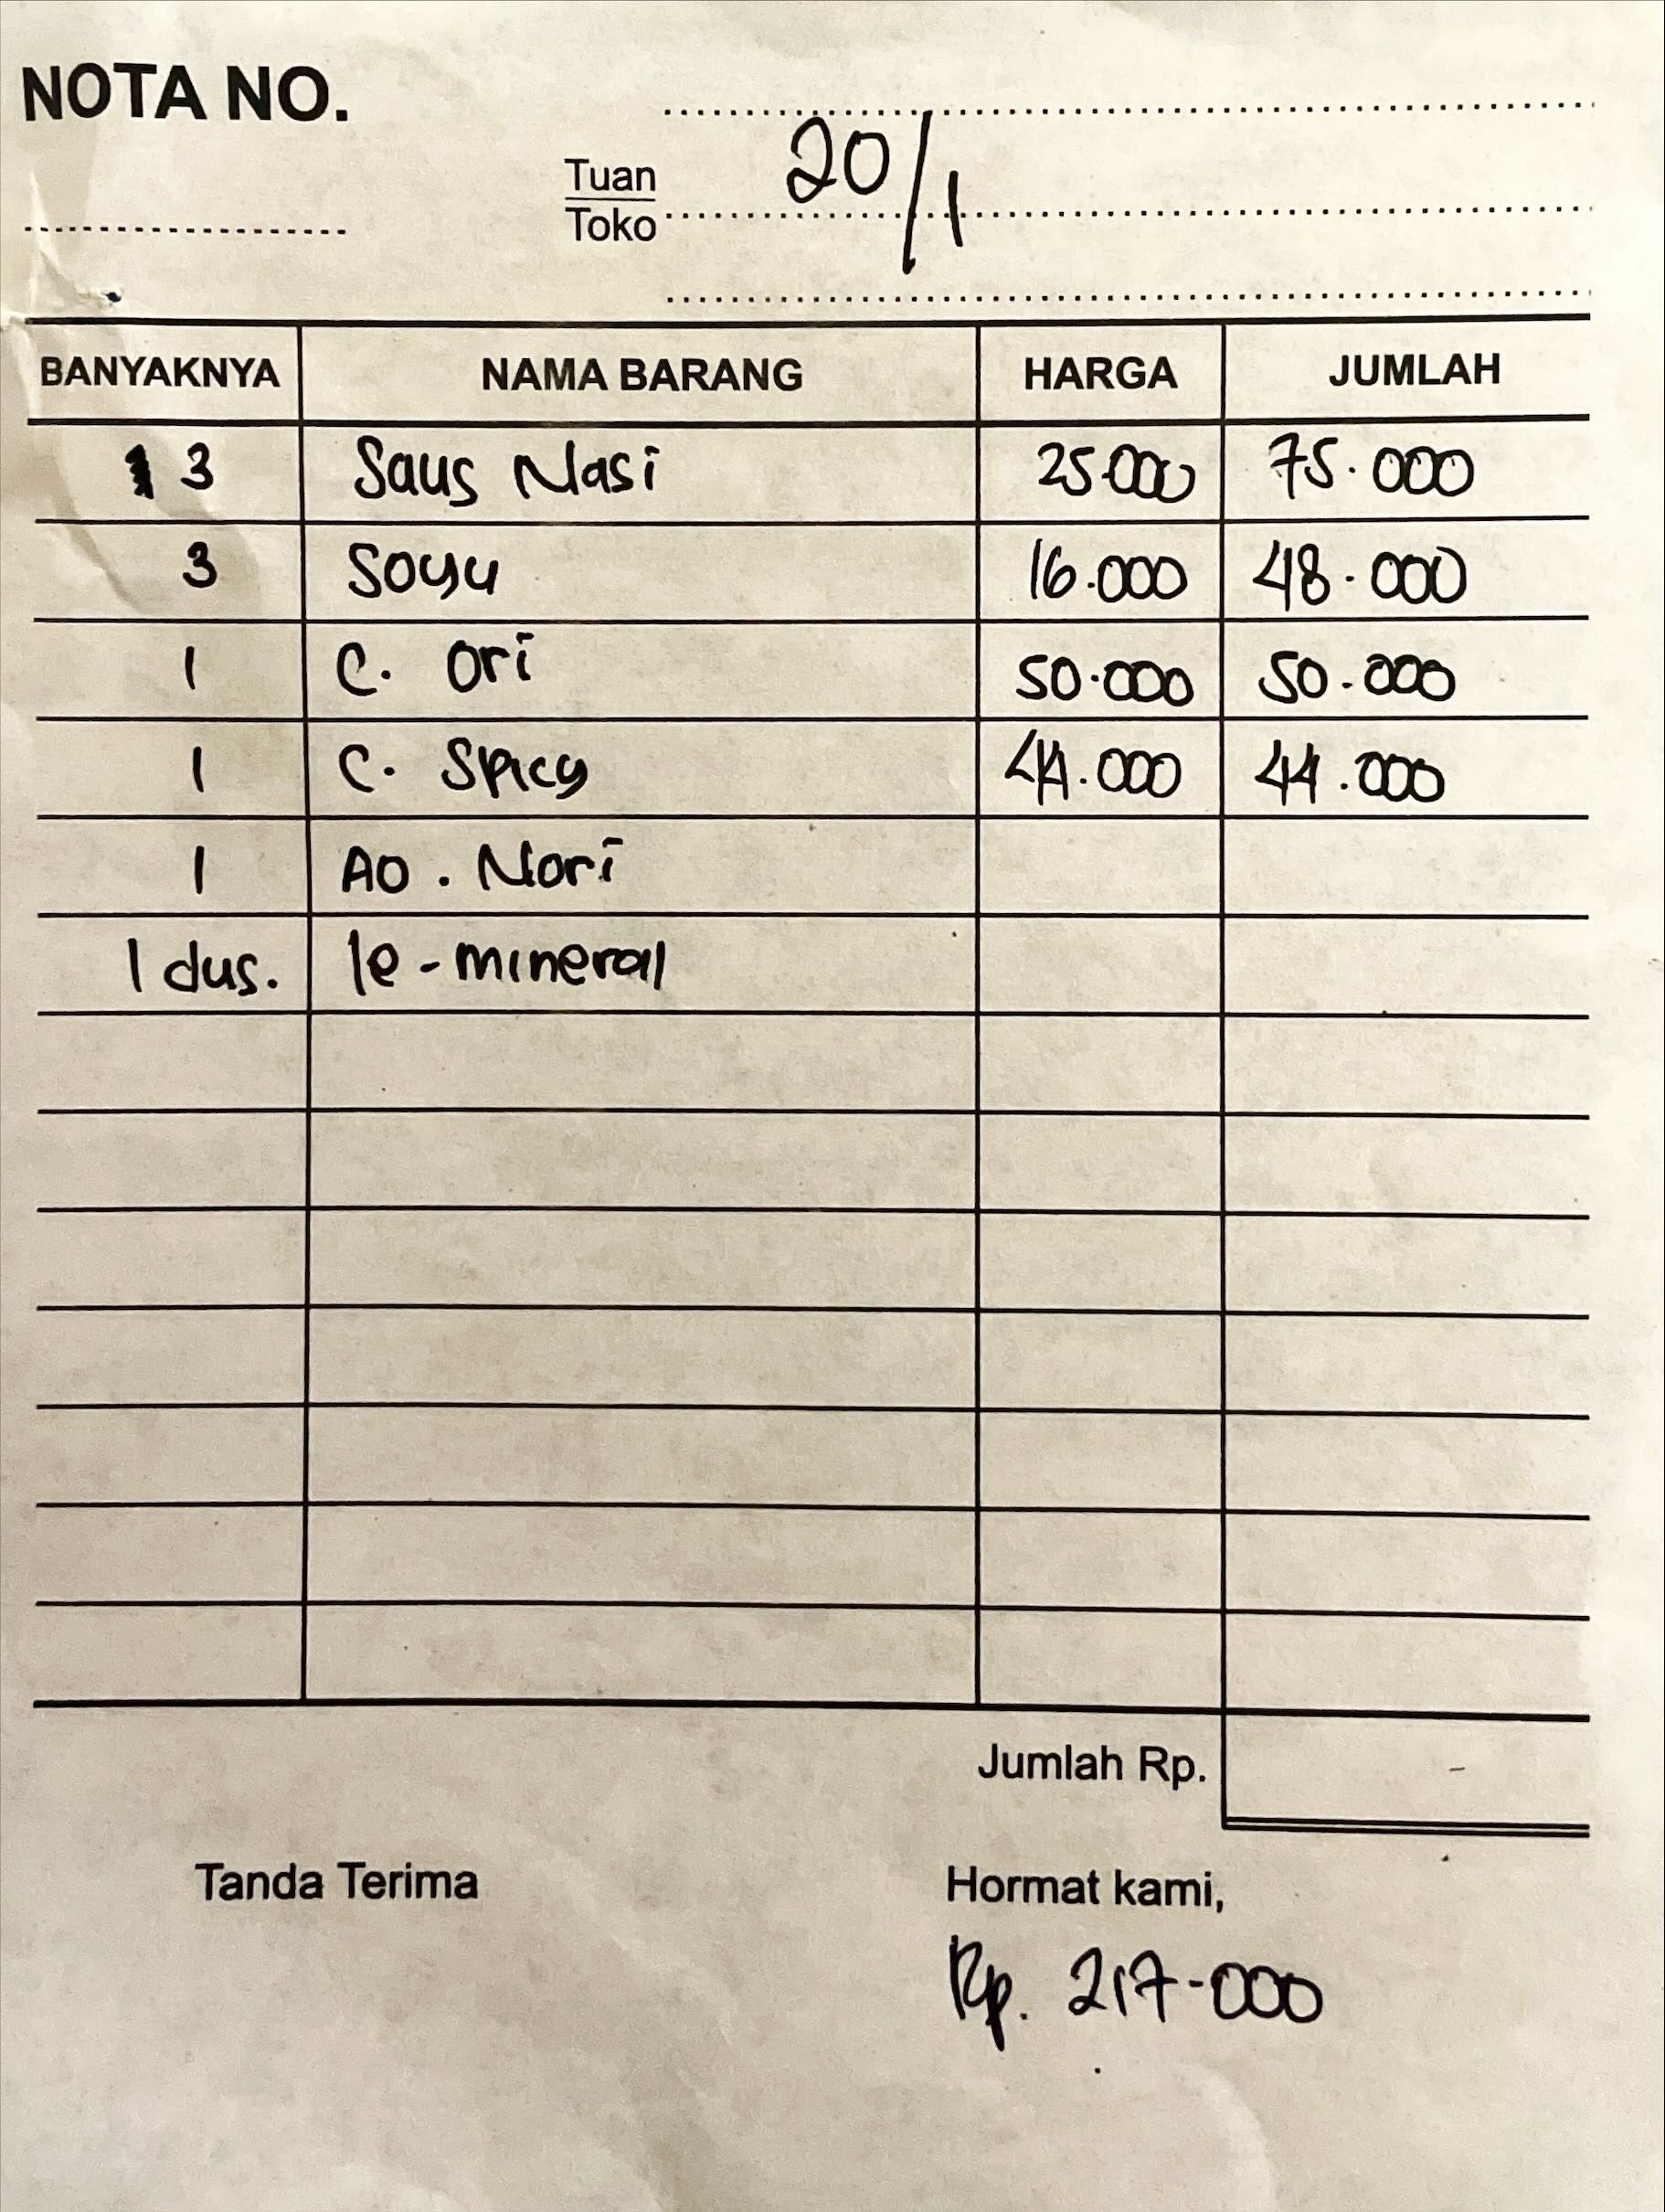 NOTA NO.
20/1
Tuan
Toko
BANYAKNYA NAMA BARANG HARGA JUMLAH
3 Saus Nasi 25.000 75.000
3 Soyu 16.000 48.000
1 C. Ori 50.000 50.000
1 C. Spicy 44.000 44.000
1 Ao. Nori
1 dus. le-mineral
Jumlah Rp. -
Tanda Terima Hormat kami,
Rp. 217-000